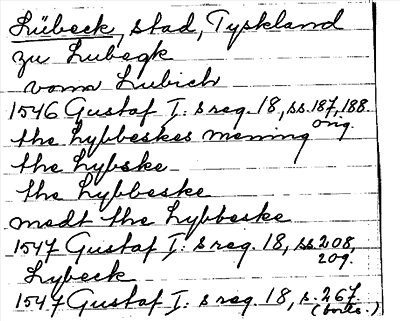 Lübeck, stad, Tyskland
zu Lubegk
vonn Lubich
1546 Gustaf I: s reg. 18, ss. 187, 188.
orig.
the Lybbeskes mening
the Lybske
the Lybbeske
medt the Lybbeske
1547 Gustaf I: s reg. 18, ss. 208,
209.
Lybeck
1547 Gustaf I: s reg. 18, s. 267